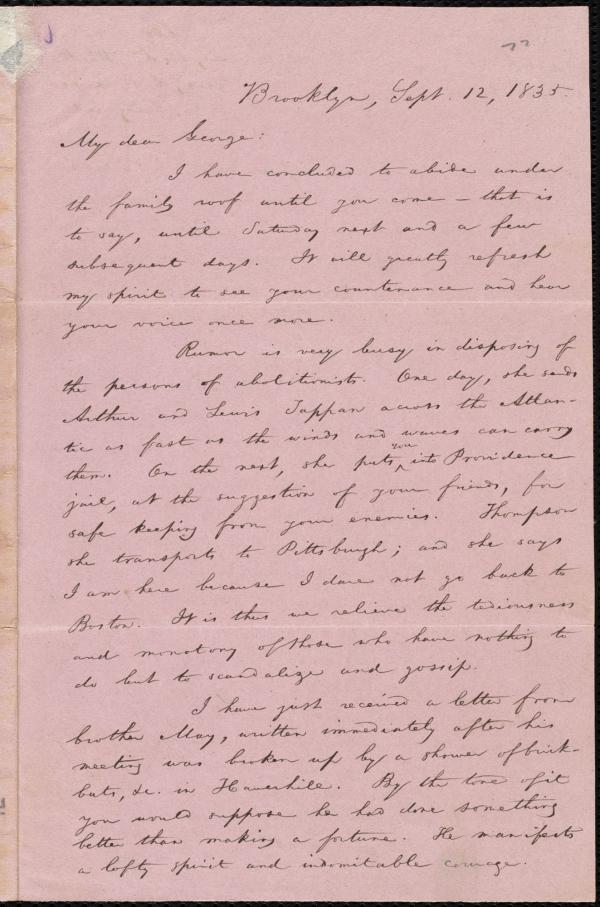 Brooklyn, Sept. 12, 1835.
My dear George:
I have concluded to abide under
the family roof until you come — that is
to say, until Saturday next and a few
subsequent days. It will greatly refresh
my spirit to see your countenance and hear
your voice once more.
Rumor is very busy in disposing of
the persons of abolitionists. One day, she sends
Arthur and Lewis Tappan across the Atlan-
tic as fast as the winds and waves can carry
them. On the next, she puts you into Providence
jail, at the suggestion of your friends, for
safe keeping from your enemies. Thompson
she transports to Pittsburgh; and she says
I am here because I dare not go back to
Boston. It is thus we relieve the tediousness
and monotony of those who have nothing to
do but to scandalize and gossip.
I have just received a letter from
brother May, written immediately after his
meeting was broken up by a shower of brick-
bats, &c. in Haverhill. By the tone of it
you would suppose he had done something
better than making a fortune. He manifests
a lofty spirit and indomitable courage.